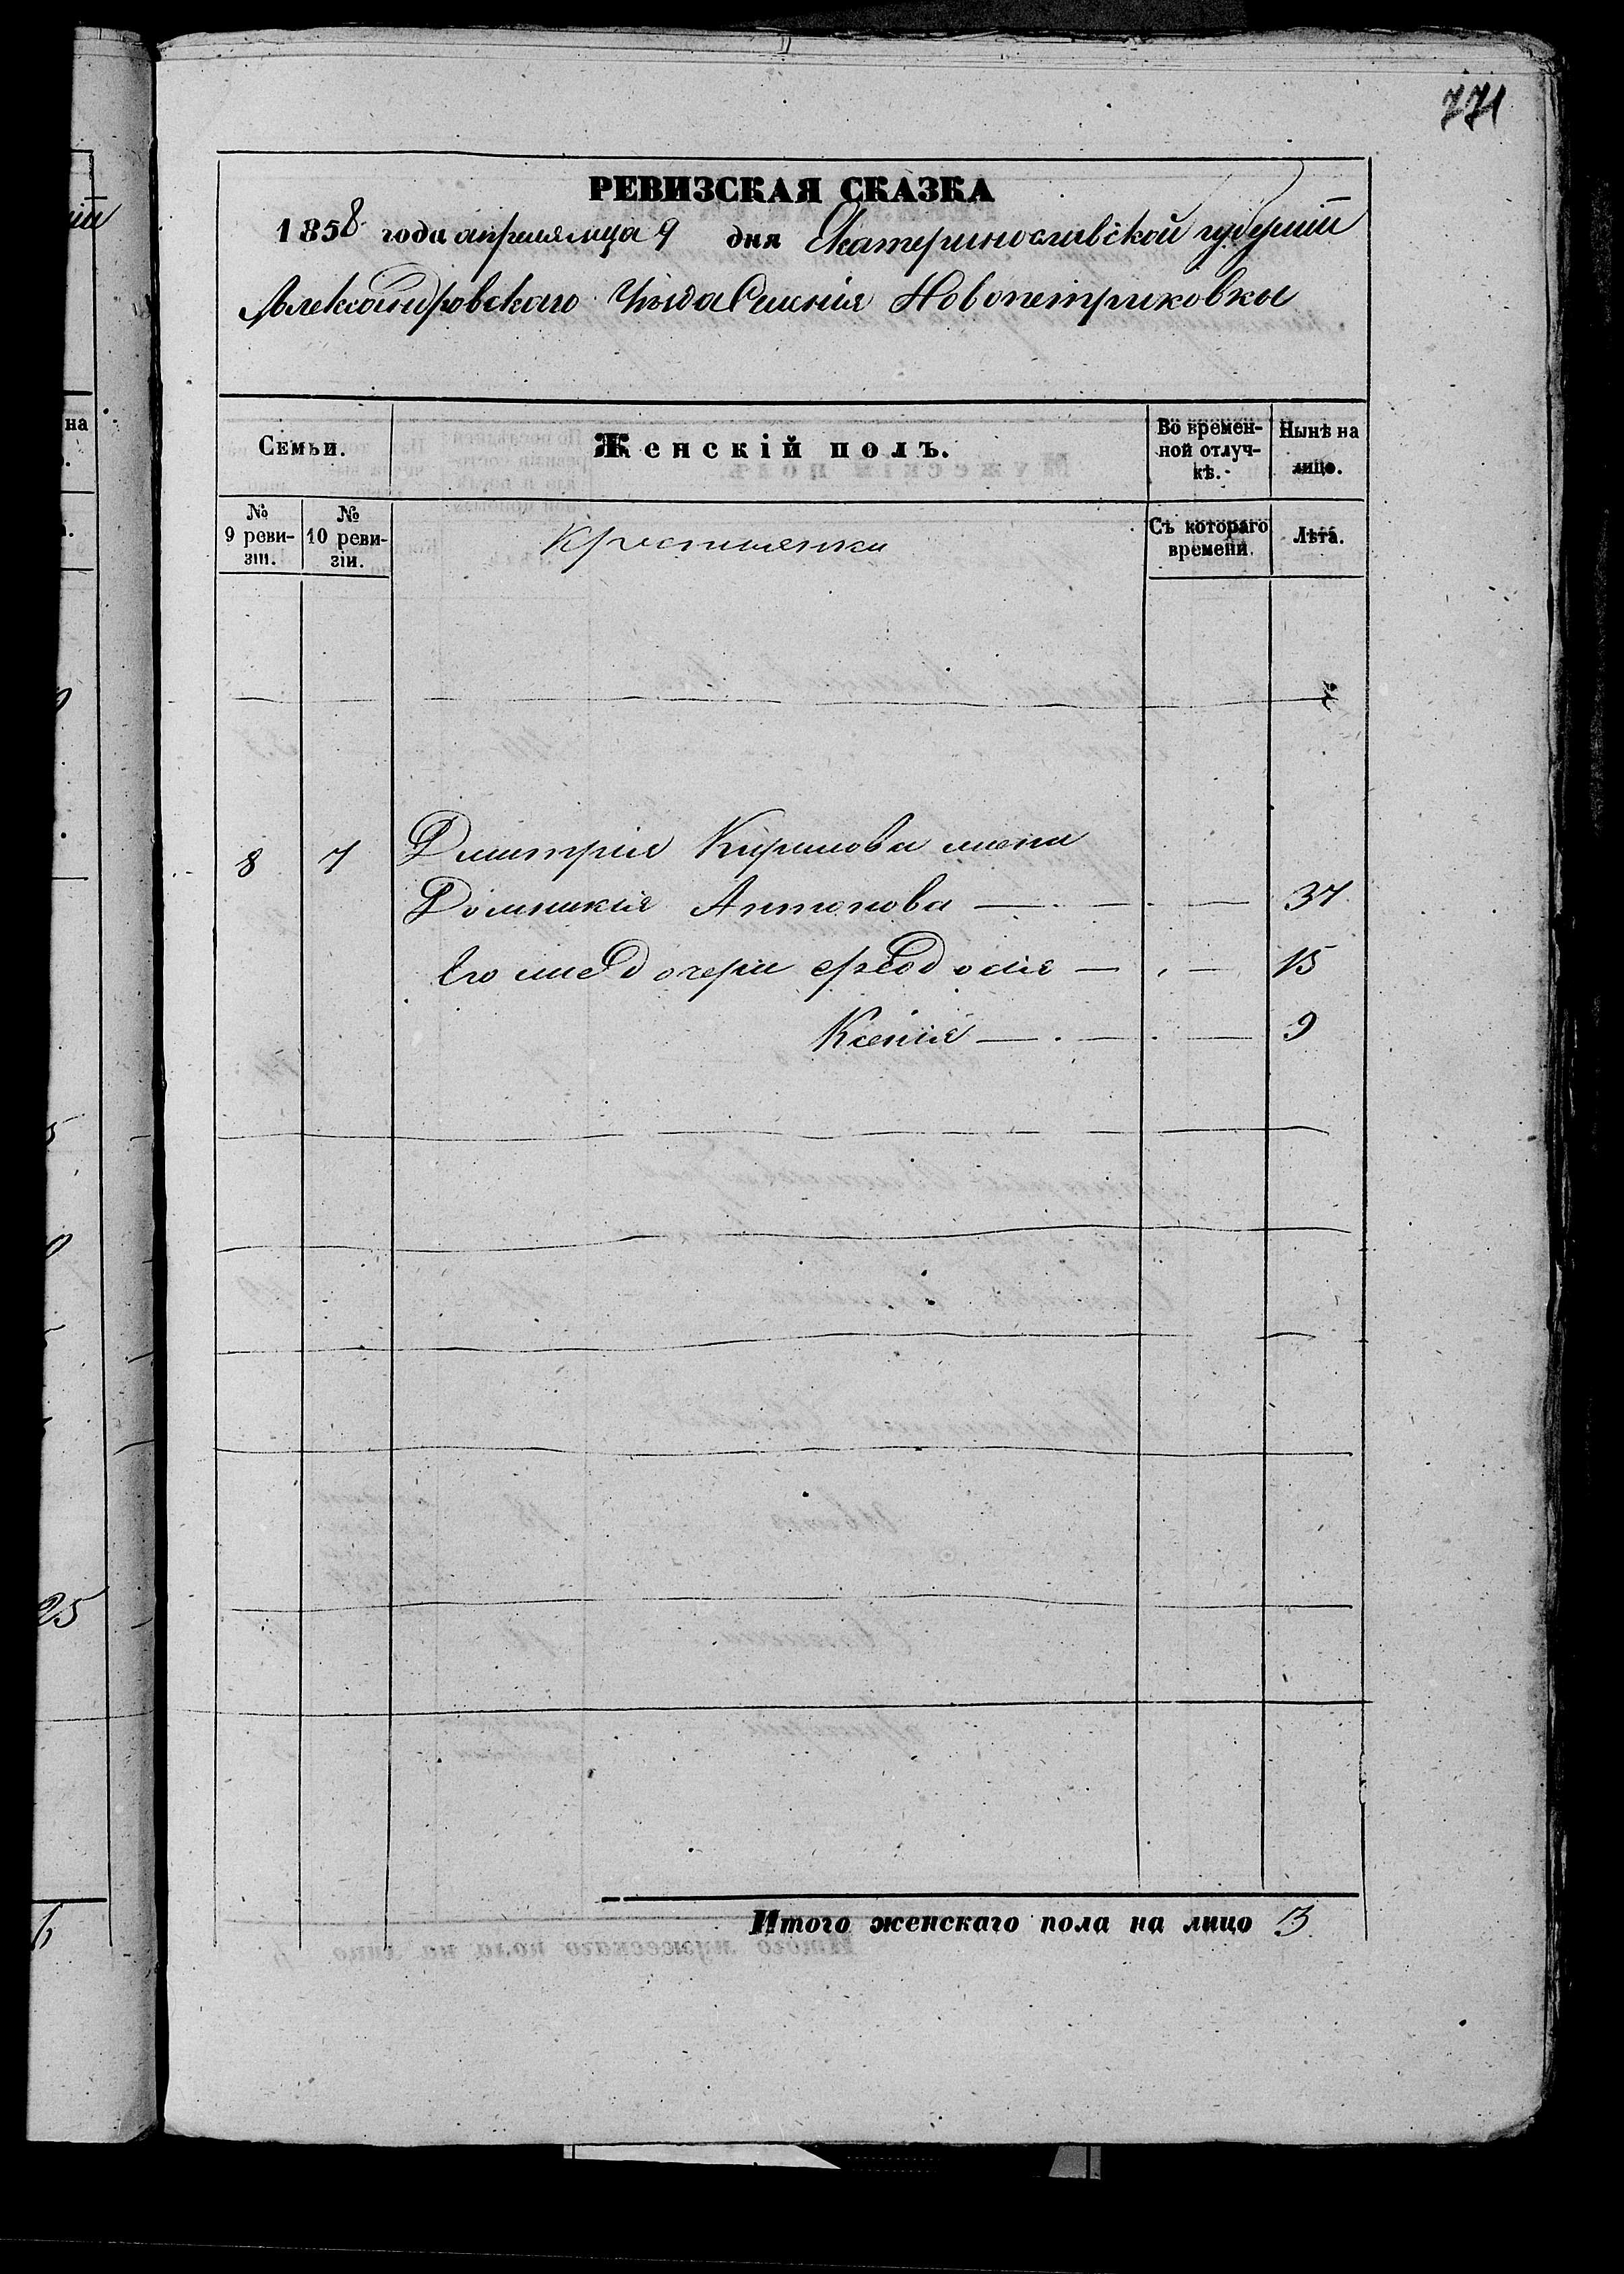 771
РЕВИЗСКАЯ СКАЗКА
1858 года апреля мца 9 дня Екатеринославской губернии
Александровскаго Уѣзда Имения Новопетриковки
Семьи.
Женскій полъ.
Во времен-
ной отлуч-
кѣ.
Нынѣ на
лицо.
№
9 реви-
зіи.
№
10 реви-
зіи.
Крестьянки
Съ котораго
времени.
Лѣта.
8 7 Дмитрия Кирилова жена
Домникія Антонова 37
Его же Дочери Феодосія 15
Ксенія 9
Итого женскаго пола на лицо 3